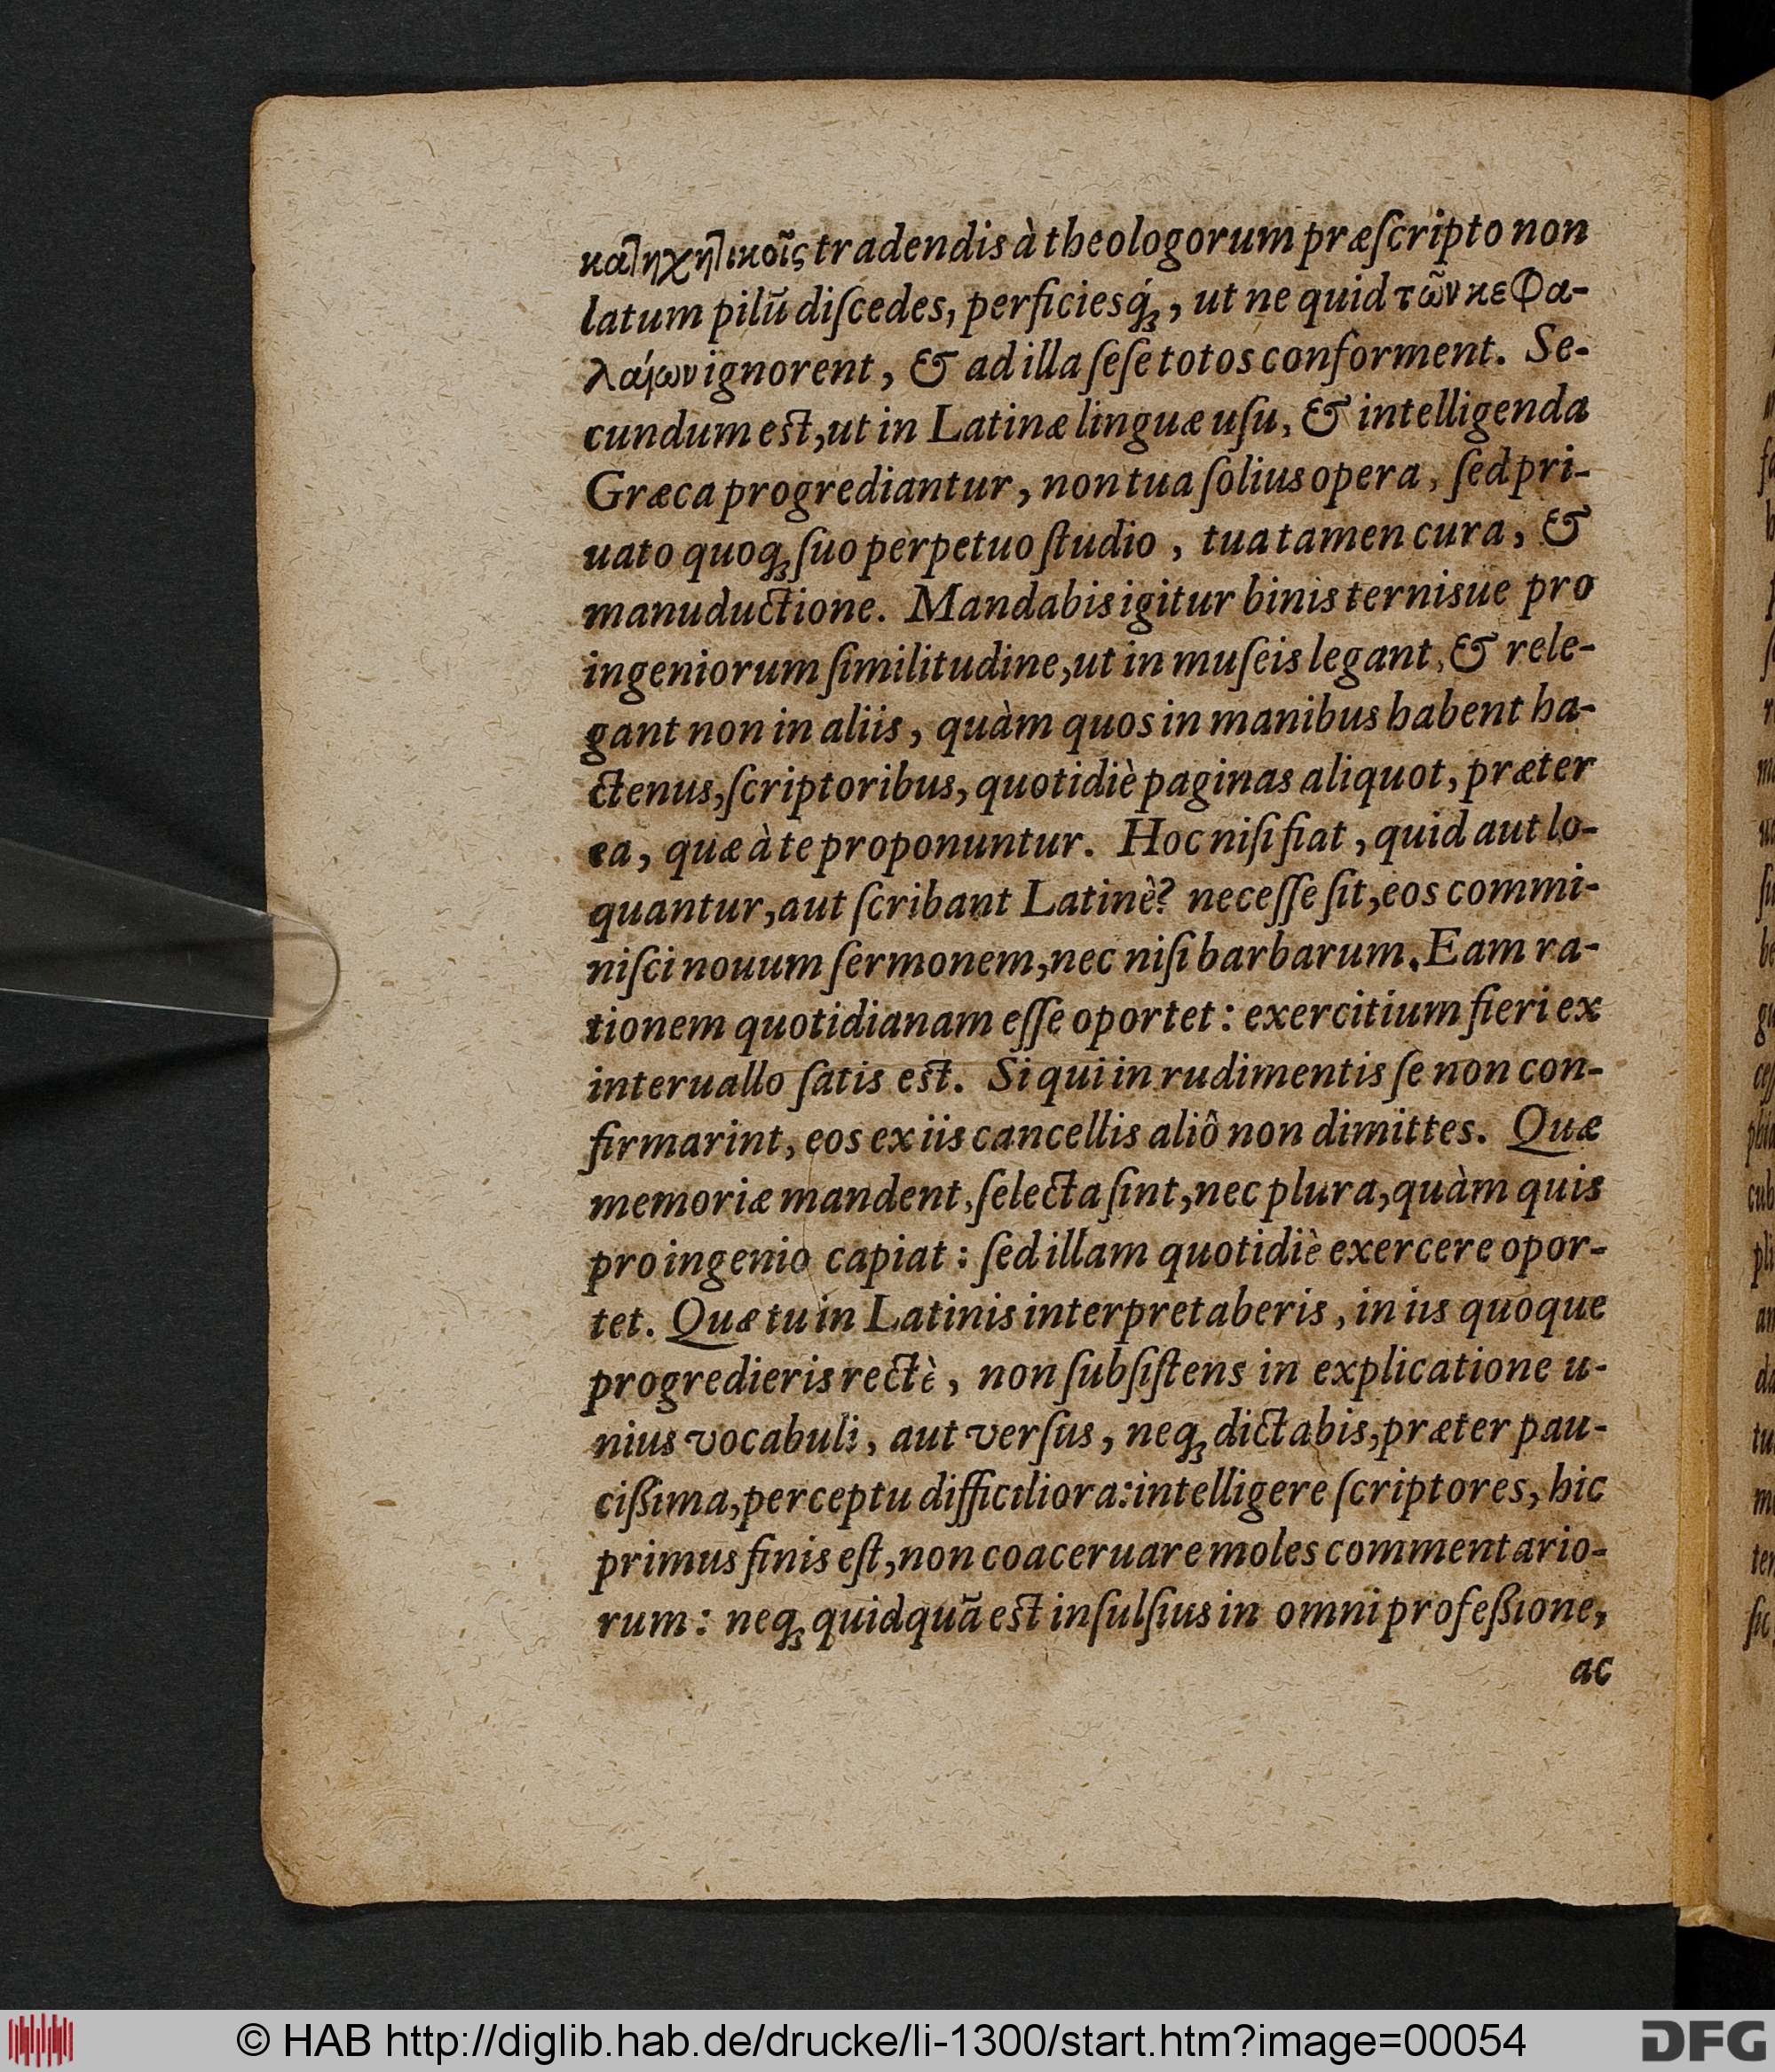 κατηχητικοῖς tradendis à theologorum præſcripto non
latum pilũ diſcedes, perficiesq́;, ut ne quid τῶν κεφα-
λαίων ignorent, & ad illa ſeſe totos conforment. Se-
cundum est, ut in Latinæ linguæ uſu, & intelligenda
Græca progrediantur, non tua ſolius opera, ſed pri-
uato quoq; ſuo perpetuo ſtudio, tua tamen cura, &
manuductione. Mandabis igitur binis ternisue pro
ingeniorum ſimilitudine, ut in muſeis legant, & rele-
gant non in aliis, quàm quos in manibus habent ha-
ctenus, ſcriptoribus, quotidiè paginas aliquot, præter
ea, quæ à te proponuntur. Hoc niſi fiat, quid aut lo-
quantur, aut ſcribant Latinè? neceſſe ſit, eos commi-
niſci nouum ſermonem, nec niſi barbarum. Eam ra-
tionem quotidianam eſſe oportet: exercitium fieri ex
interuallo ſatis est. Si qui in rudimentis ſe non con-
firmarint, eos ex iis cancellis aliô non dimittes. Quæ
memoriæ mandent, ſelecta ſint, nec plura, quàm quis
pro ingenio capiat: ſed illam quotidiè exercere opor-
tet. Quæ tu in Latinis interpretaberis, in iis quoque
progredieris rectè, non ſubſiſtens in explicatione u-
nius vocabuli, aut verſus, neq; dictabis, præter pau-
cißima, perceptu difficiliora: intelligere ſcriptores, hic
primus finis eſt, non coaceruare moles commentario-
rum: neq; quidquã est inſulſius in omni profeßione,
ac
© HAB http://diglib.hab.de/drucke/li-1300/start.htm?image=00054
DFG